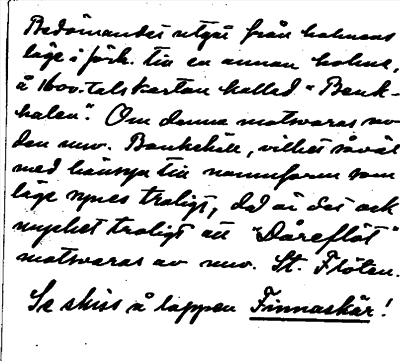 Bedömandet utgår från holmens
läge i förh. till en annan holme,
å 1600-talskartan kallad "Bank-
halen". Om denna motsvaras av
den nuv. Bankehäll, vilket såväl
med hänsyn till namnformen som
läge synes troligt, då är det ock
mycket troligt att "Dåreflöt"
motsvaras av nuv. St. Flöten.
Se skiss å lappen Finnaskär!